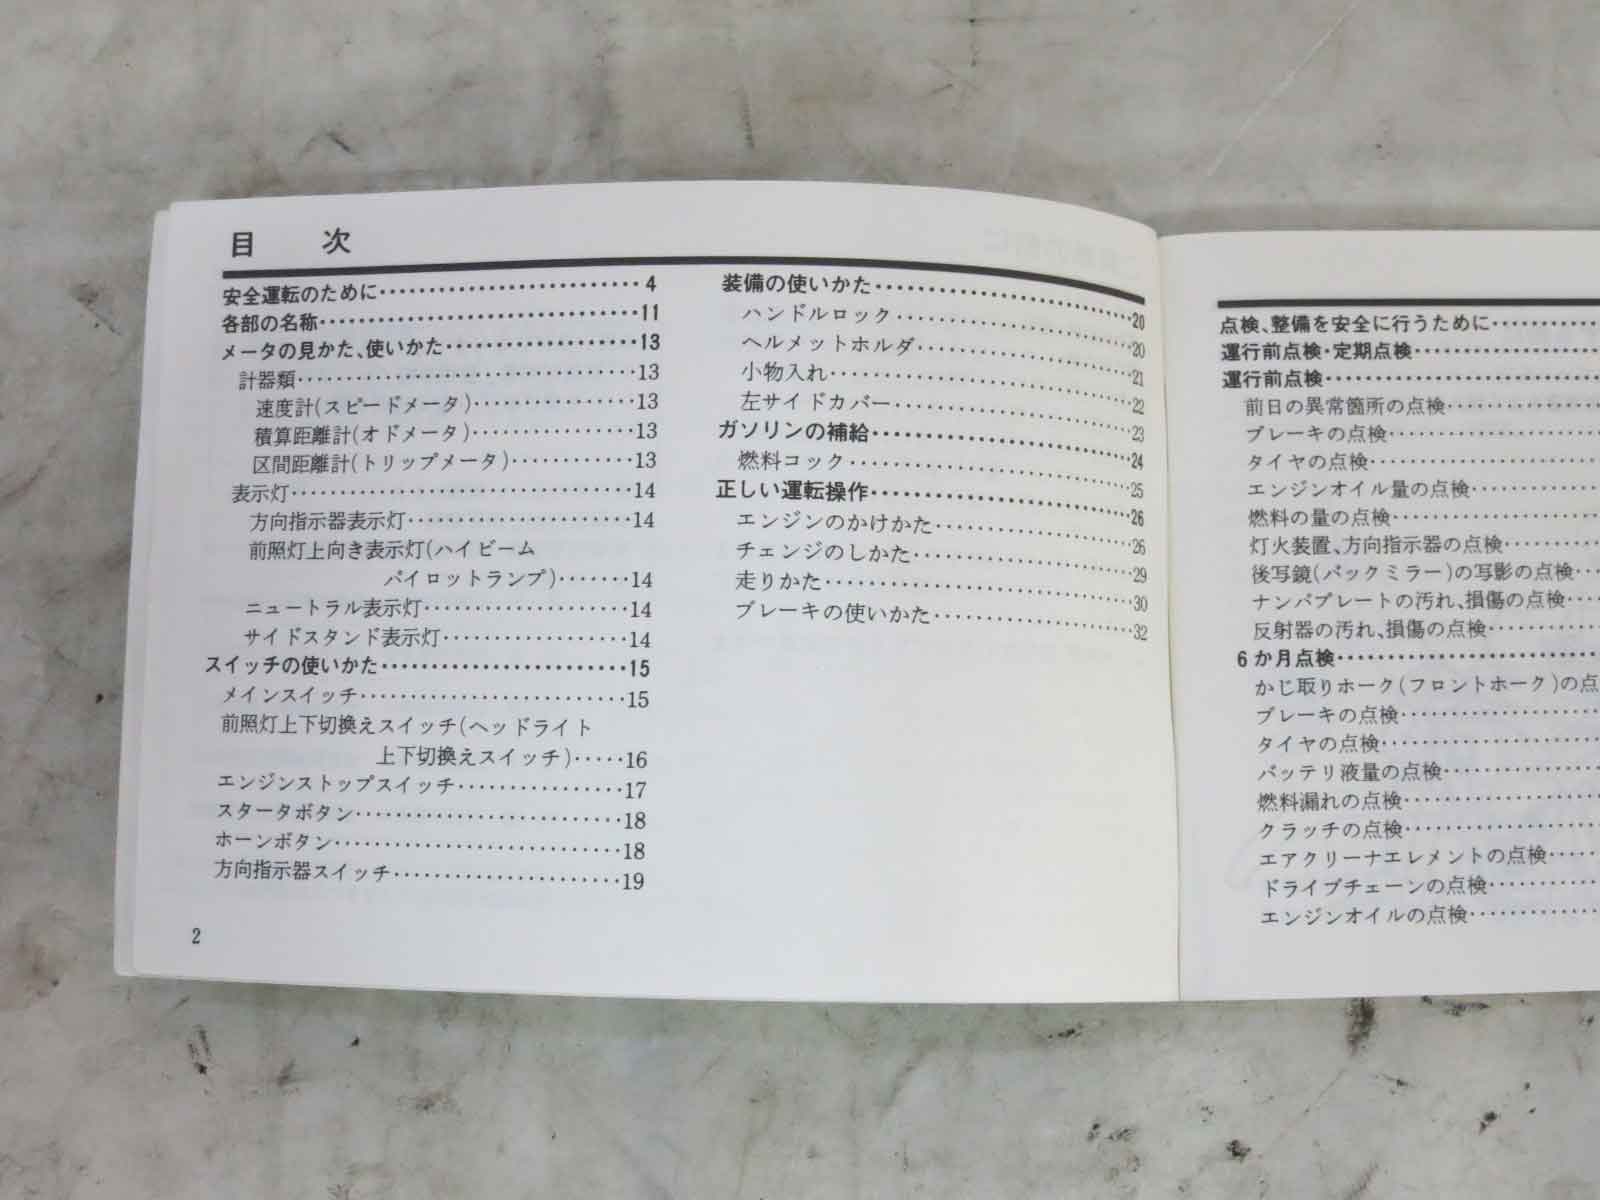 目　次
安全運転のために……………………4
各部の名称……………………11
メータの見かた、使いかた……………………13
計器類……………………13
速度計(スピードメータ)……………………13
積算距離計(オドメータ)……………………13
区間距離計(トリップメータ)……………………13
表示灯……………………14
方向指示器表示灯……………………14
前照灯上向き表示灯(ハイビーム
パイロットランプ)……14
ニュートラル表示灯……………………14
サイドスタンド表示灯……………………14
スイッチの使いかた……………………15
メインスイッチ……………………15
前照灯上下切換えスイッチ(ヘッドライト
上下切換えスイッチ)……16
エンジンストップスイッチ……………………17
スタータボタン……………………18
ホーンボタン……………………18
方向指示器スイッチ……………………19
2
装備の使いかた……………………20
ハンドルロック……………………20
ヘルメットホルダ……………………21
小物入れ……………………22
左サイドカバー……………………23
ガソリンの補給……………………24
燃料コック……………………25
正しい運転操作……………………26
エンジンのかけかた……………………26
チェンジのしかた……………………29
走りかた……………………30
ブレーキの使いかた……………………32
点検、整備を安全に行うために……………
運行前点検・定期点検……………
運行前点検……………
前日の異常箇所の点検……………
ブレーキの点検……………
タイヤの点検……………
エンジンオイル量の点検……………
燃料の量の点検……………
灯火装置、方向指示器の点検……………
後写鏡(バックミラー)の写影の点検……
ナンバプレートの汚れ、損傷の点検……
反射器の汚れ、損傷の点検……………
6か月点検……………
かじ取りホーク(フロントホーク)の点
ブレーキの点検……………
タイヤの点検……………
バッテリ液量の点検……………
燃料漏れの点検……………
クラッチの点検……………
エアクリーナエレメントの点検……
ドライブチェーンの点検……………
エンジンオイルの点検……………